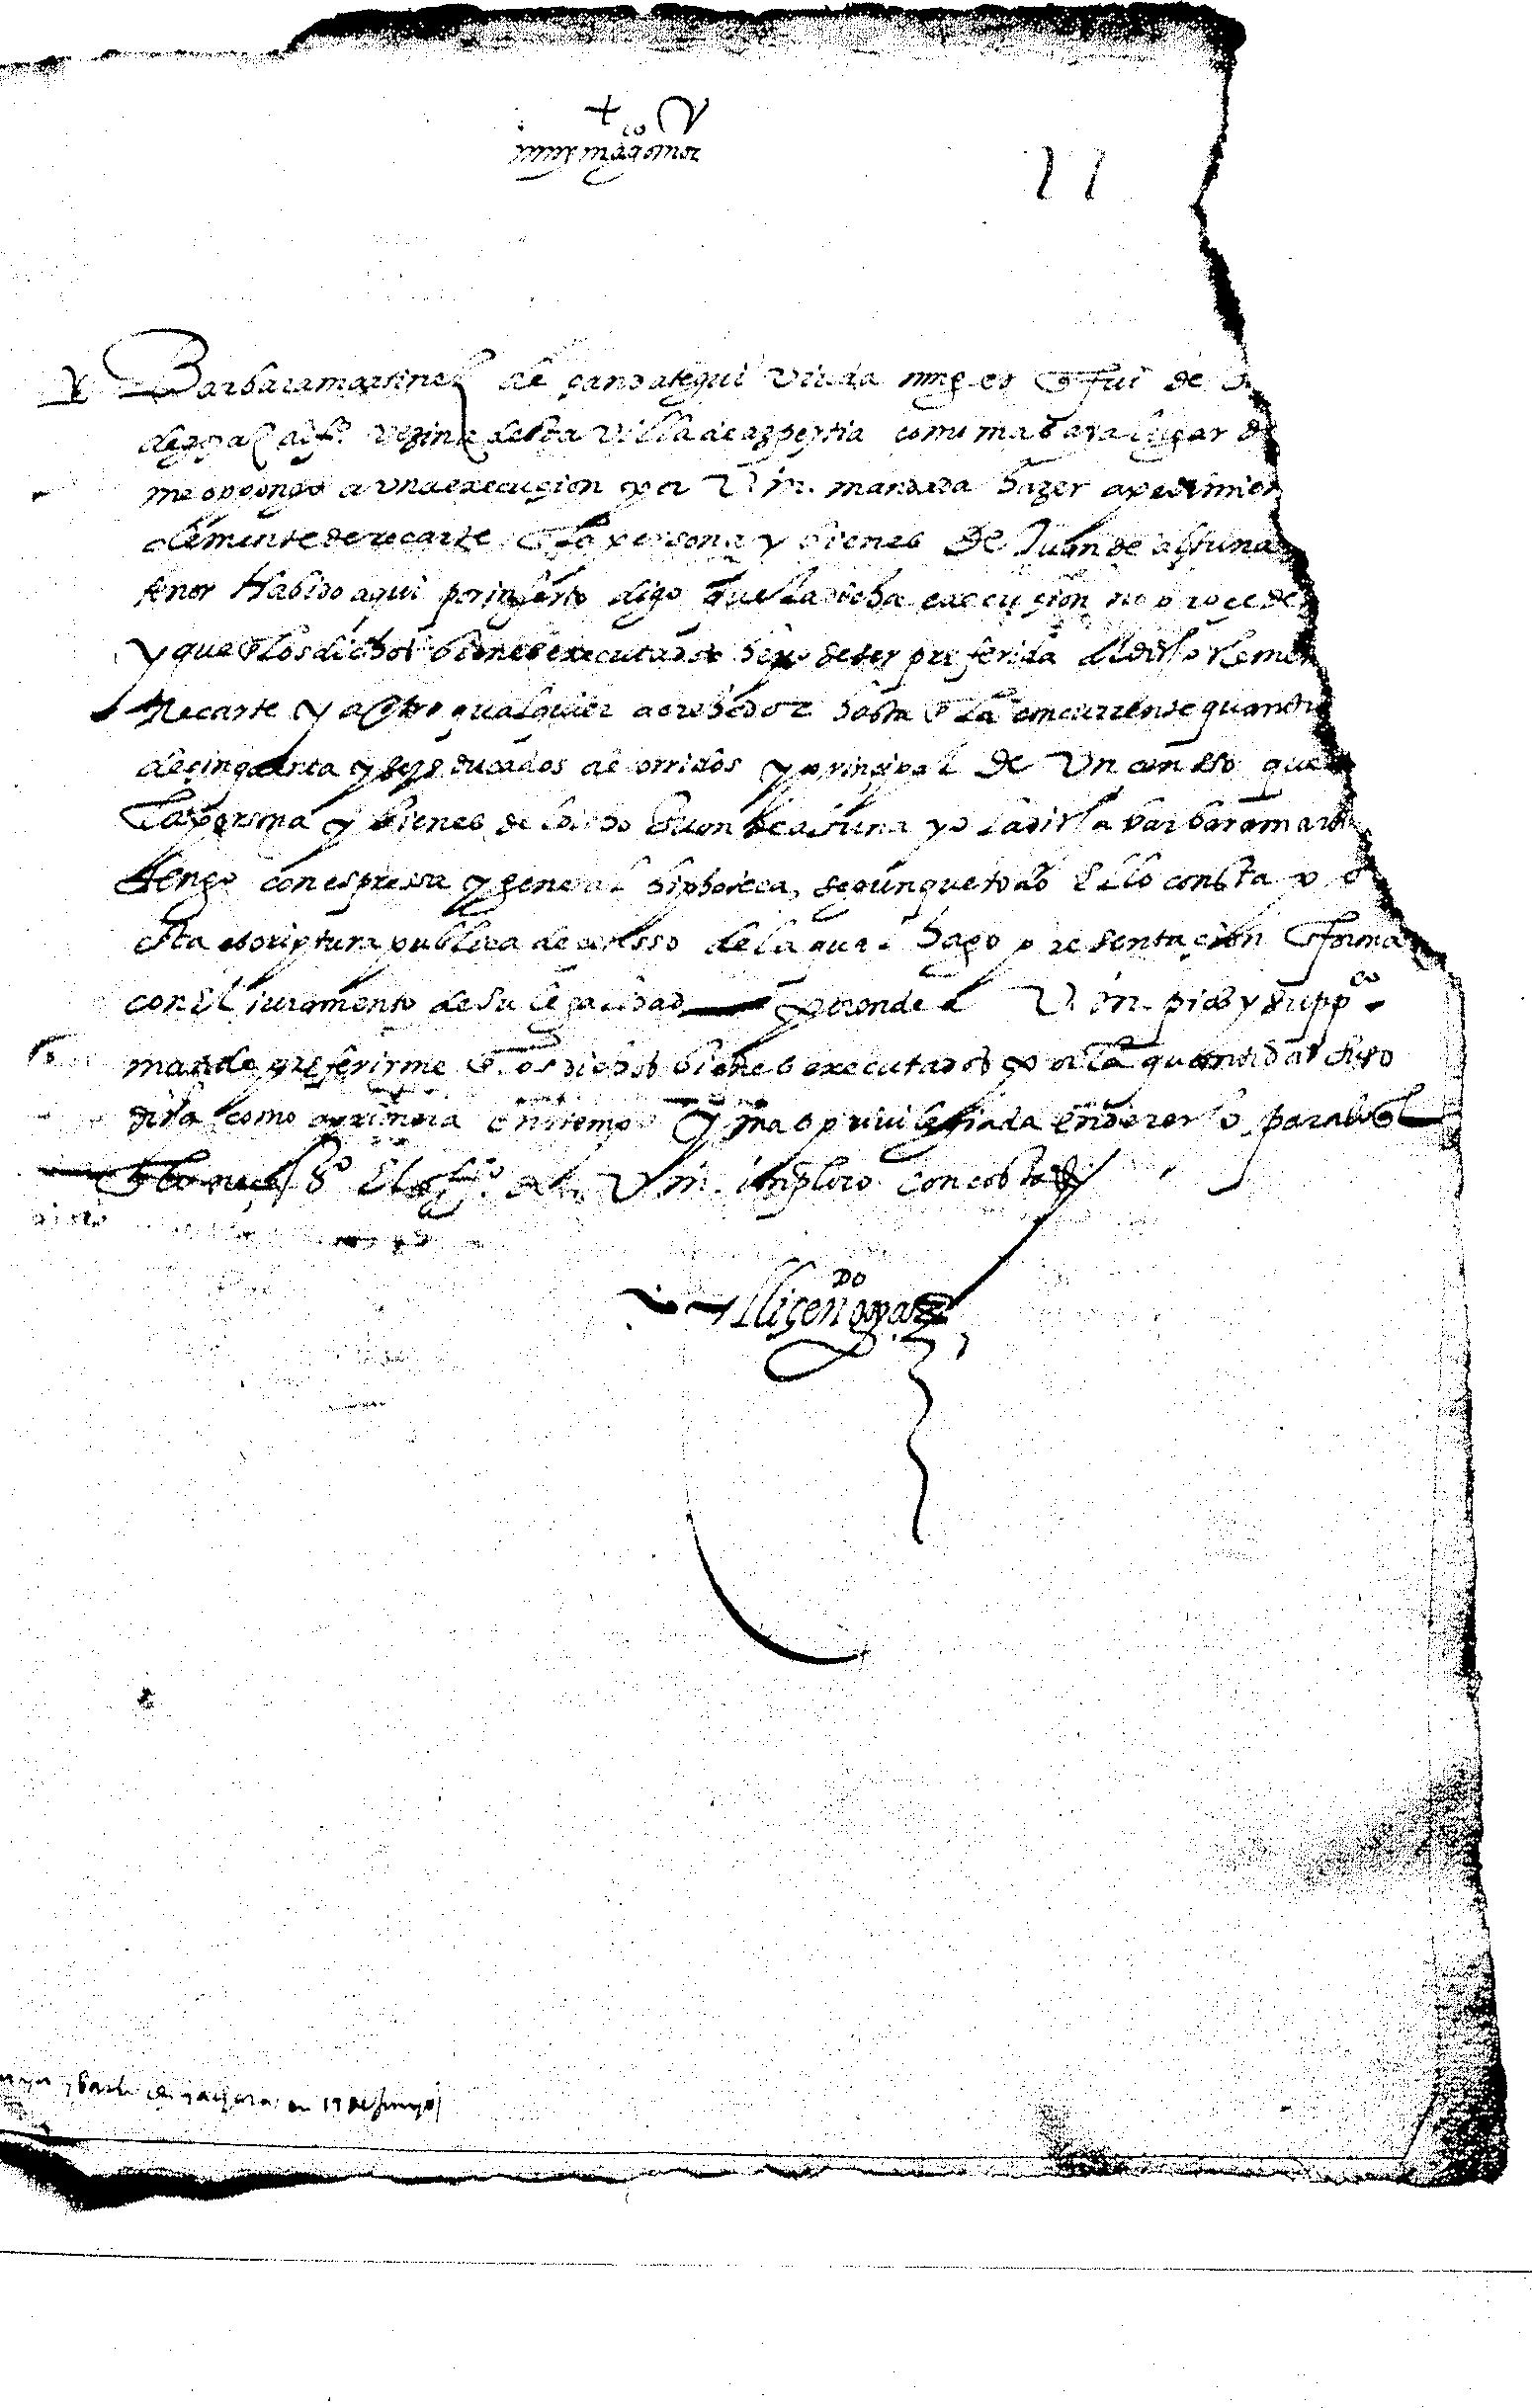 +
muy mag.co señor
11
Barbara martinez de çandategui viuda muger que fui de
vezina desta villa de azpeitia como mas aya lugar de
me oppongo a una execuçion por V. m. mandada hazer a pedimien
clemente de recarte en la persona y bienes de Juan de altuna
tenor Habido aqui por inserto digo que la dicha execuçion no procede
y que en los dichos bienes executados devo de ser preferida al dicho clemen
Recarte y a otro qualquier acrehedor hasta en la concurrente quantid
de çinquenta y seys ducados de corridos y prinçipal de Un censso que
la persona y bienes del dicho Juan de altuna yo la dicha barbara mart
tengo con espressa y general hiphoteca, segun que todo Ello consta por
esta escriptura publica de censso de la qual hago presentaçion en forma
con El juramento de su legalidad por ende a V. m. pido y supp.co
mande preferirme en los dichos bienes executados por la quantidad suso
dicha como a primera en tiempo y mas previlegiada en derecho para lo qual
El off.o de V. m. imploro con costas
El liçen.do
en 19 de junyo